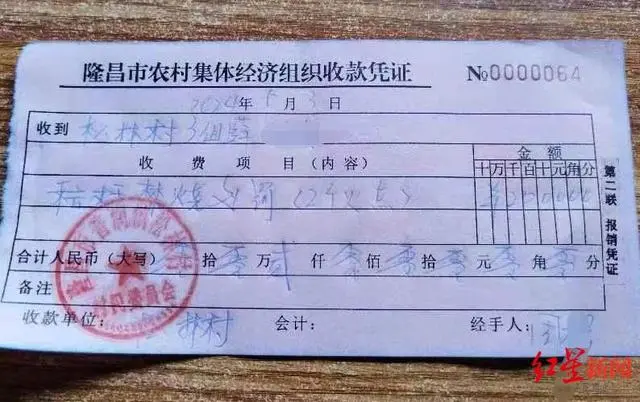 隆昌市农村集体经济组织收款凭证 №0000064
2024年5月3日
收到 松林村3组薛
收费项目(内容) 金额
十万千百十元角分
秸秆禁烧 罚 (2个火点) ¥200000
合计人民币(大写) 零拾零万贰仟零佰零拾零元零角零分
备注
收款单位: 林村 会计: 经手人:
第二联 报销凭证
村民委员会
红星新闻